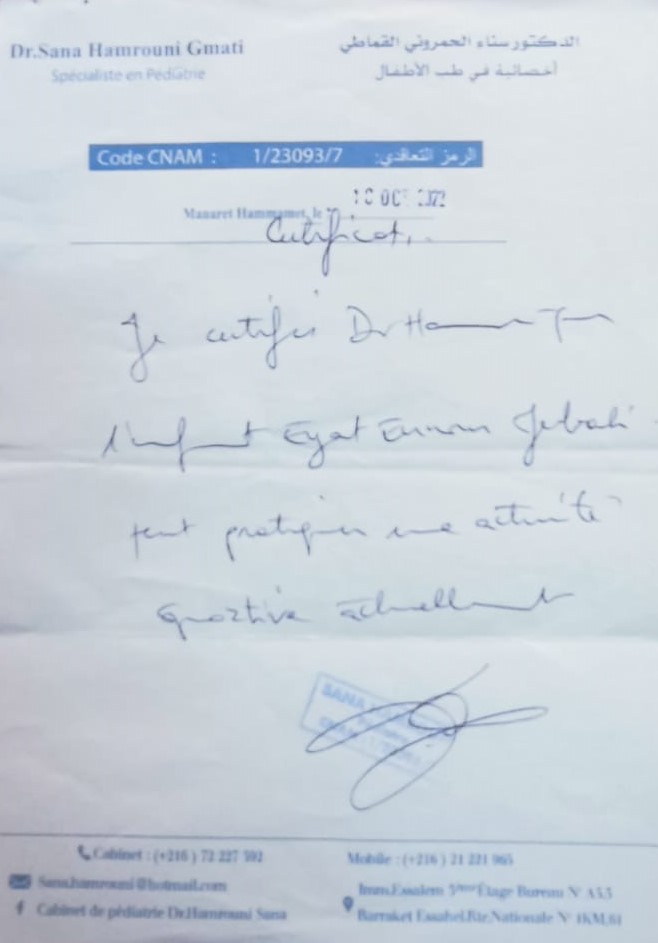 Dr.Sana Hamrouni Gmati
الدكتورة سناء الحمروني القماطي
Spécialiste en Pédiatrie
أخصائية في طب الأطفال
Code CNAM : 1/23093/7 الرمز التعاقدي:
Manaret Hammamet, le
Certificat
Je certifie Dr
l'enfant Eyat Ennour Jebali
peut pratiquer une activité
sportive actuellement
SANA
Cabinet : (+216 ) 72 227 592
Mobile : (+216 ) 21 221 965
Sana.hamrouni@hotmail.com
Imm.Essalem 5ème Étage Bureau N° A5.5
Cabinet de pédiatrie Dr.Hamrouni Sana
Barraket Essahel.Rte.Nationale N° 1KM.61